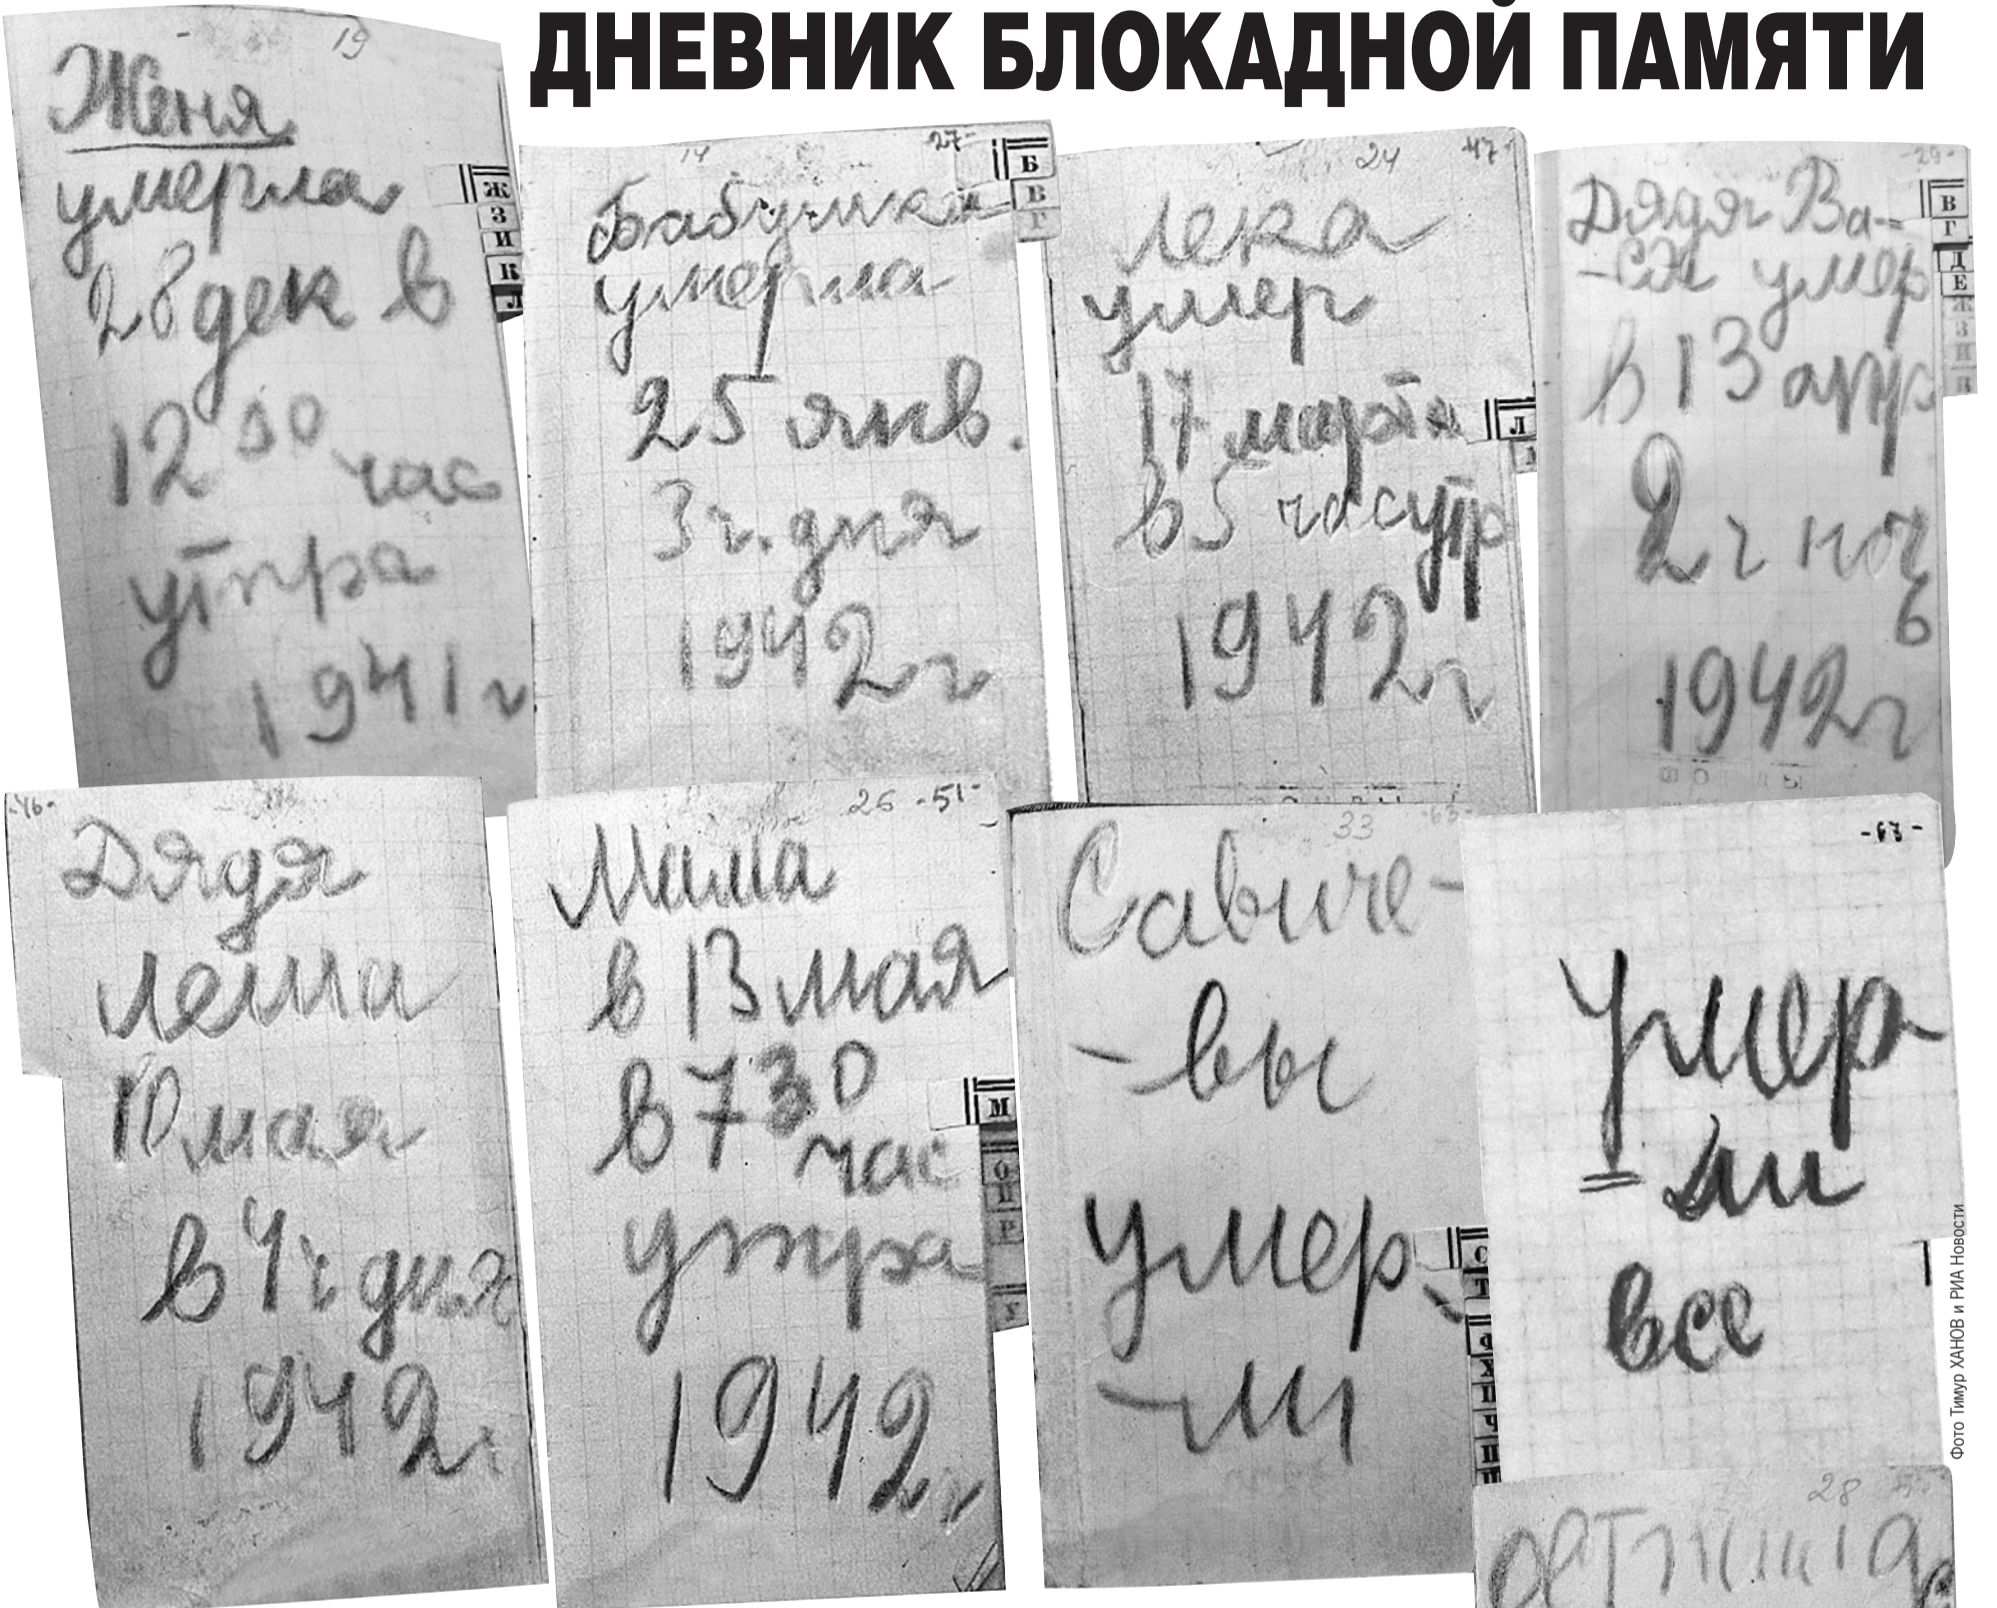 ДНЕВНИК БЛОКАДНОЙ ПАМЯТИ
19
Женя
умерла
28 дек в
12 30 час
утра
1941 г
Ж
З
И
К
Л
14 27-
Бабушка
умерла
25 янв.
3 ч. дня
1942 г
Б
В
Г
24 -47-
Лека
умер
17 марта
в 5 час утр
1942 г
Л
-29-
Дядя Ва-
-ся умер
в 13 апр
2 ч ноч
ь
1942 г
В
Г
Д
Е
Ж
З
И
К
-46-
Дядя
Леша
10 мая
в 4 ч дня
1942 г
26 -51-
Мама
в 13 мая
в 7 30
час
утра
1942 г
М
О
П
Р
У
33 -63-
Савиче-
-вы
умер-
-ли
С
Т
-63-
Умер
= ли
все
28
Фото Тимур ХАНОВ и РИА Новости